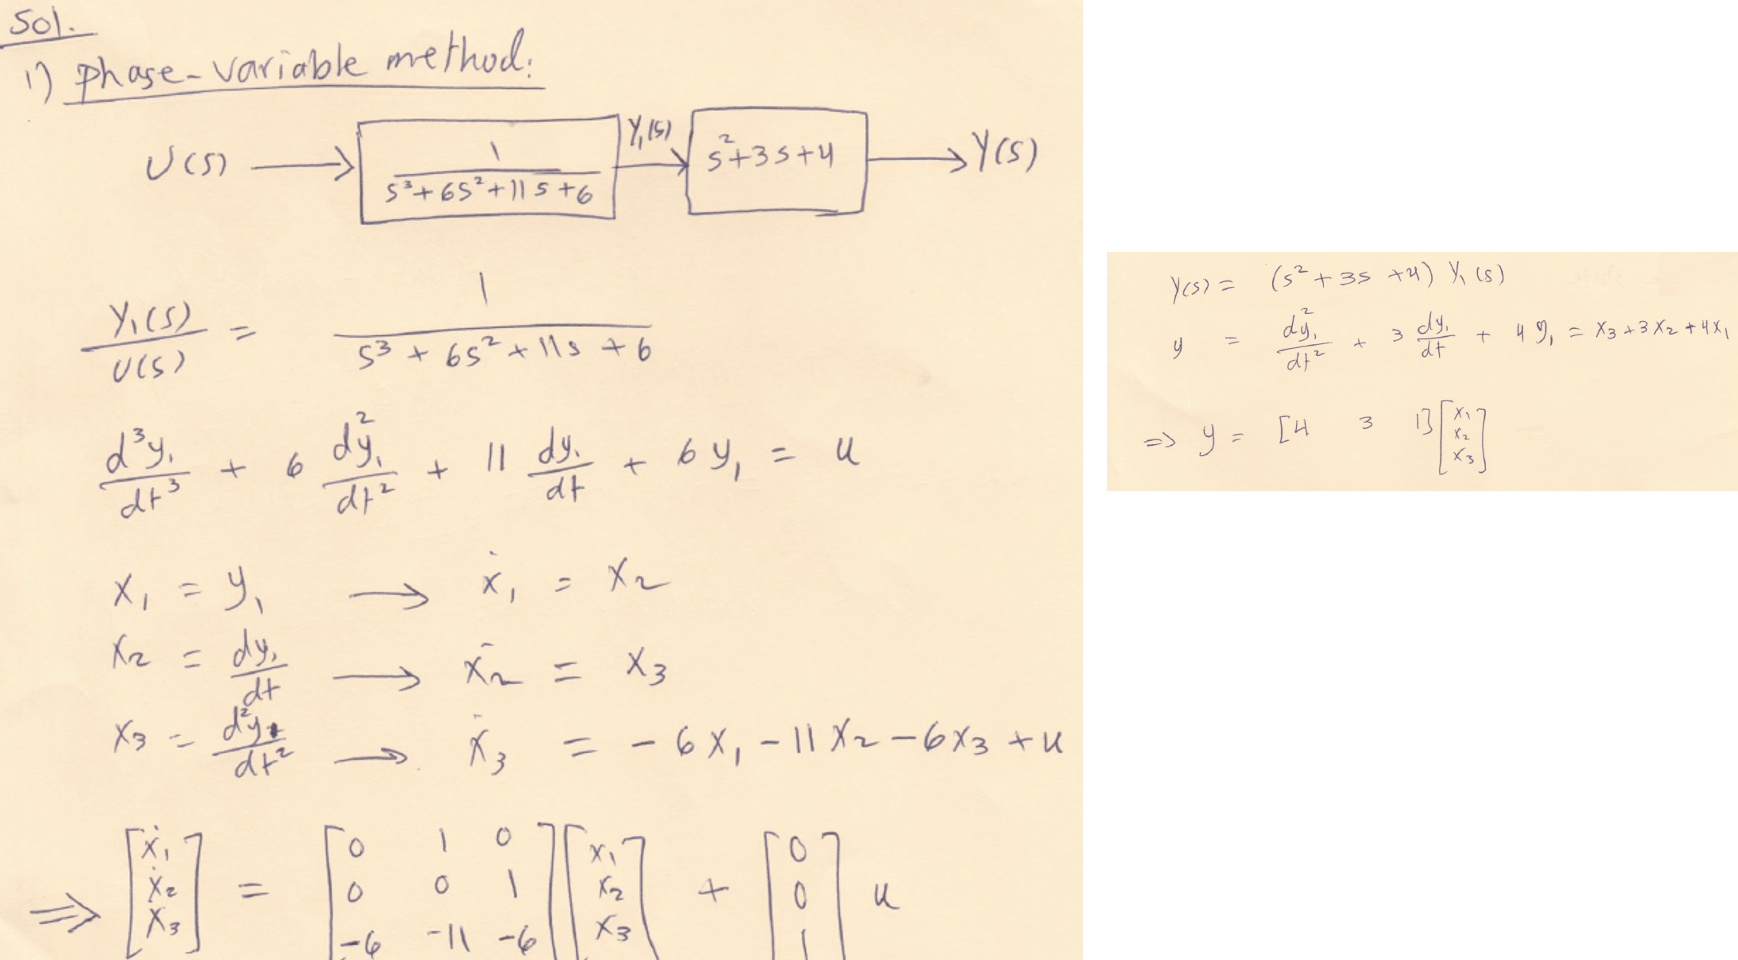 Sol.
1) phase-variable method:
U(s) ⟶ 1/(s³+6s²+11s+6) Y₁(s) ⟶ s²+3s+4 ⟶ Y(s)
Y₁(s)/U(s) = 1/(s³ + 6s² + 11s + 6)
d³y₁/dt³ + 6 d²y₁/dt² + 11 dy₁/dt + 6y₁ = u
x₁ = y₁ ⟶ ẋ₁ = x₂
x₂ = dy₁/dt ⟶ ẋ₂ = x₃
x₃ = d²y₁/dt² ⟶ ẋ₃ = -6x₁ -11x₂ -6x₃ + u
⇒ [ẋ₁ ẋ₂ ẋ₃] = [0 1 0; 0 0 1; -6 -11 -6] [x₁ x₂ x₃] + [0 0 1] u
Y(s) = (s² + 3s + 4) Y₁(s)
y = d²y₁/dt² + 3 dy₁/dt + 4y₁ = x₃+3x₂+4x₁
⇒ y = [4 3 1] [x₁ x₂ x₃]